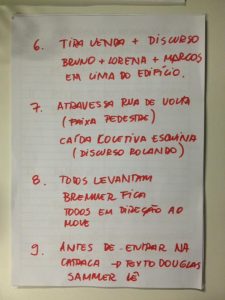 6. TIRA VENDA + DISCURSO
BRUNO + LORENA + MARCOS
EM CIMA DO EDIFÍCIO.
7. ATRAVESSA RUA DE VOLTA
(FAIXA PEDESTRE)
CAÍDA COLETIVA ESQUINA
(DISCURSO ROLANDO)
8. TODOS LEVANTAM
BREMMER FICA
TODOS EM DIREÇÃO AO
MOVE
9. ANTES DE ENTRAR NA
CATRACA → TEXTO DOUGLAS
SAMMER LÊ